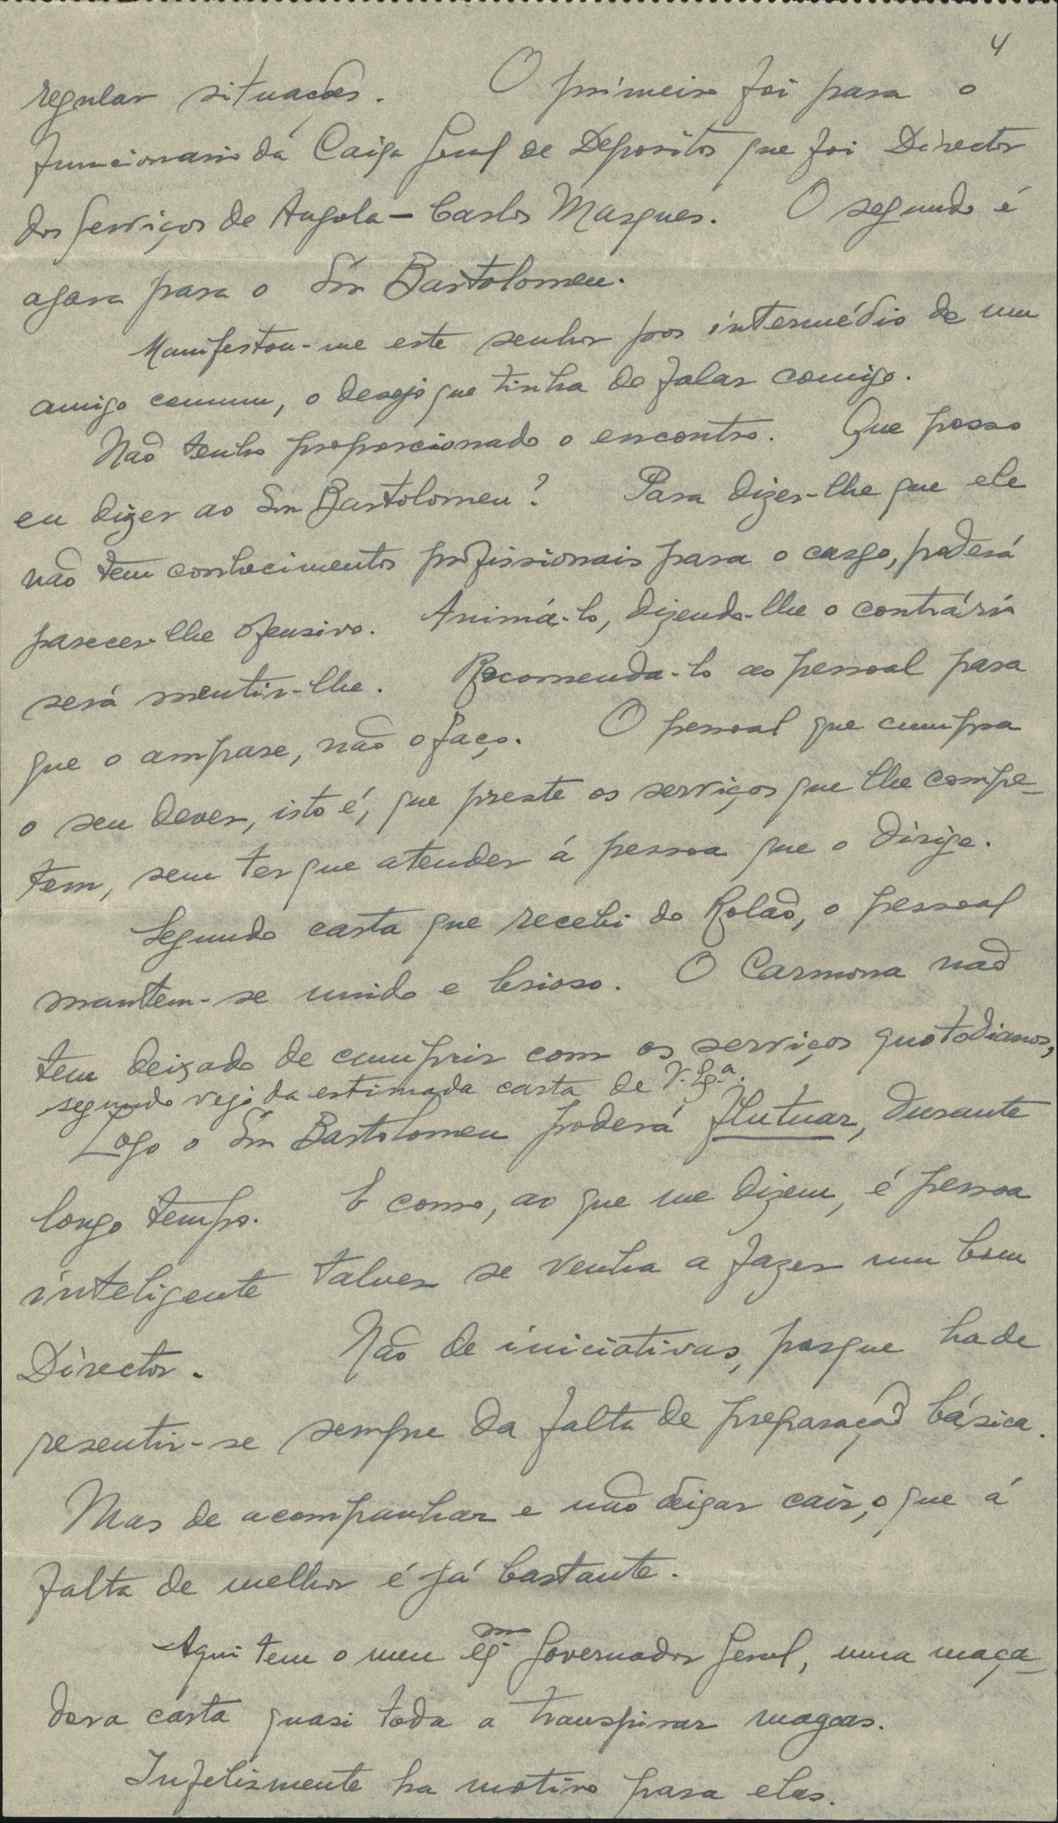 4
regular situações. O primeiro foi para o
funcionario da Caixa Geral de Depositos que foi Director
dos Serviços de Angola - Carlos Marques. O segundo é
agora para o Snr Bartolomeu.
Manifestou-me este senhor por intermédio de um
amigo comum, o desejo que tinha de falar comigo.
Não tenho proporcionado o encontro. Que posso
eu dizer ao Snr Bartolomeu? Para dizer-lhe que ele
não tem conhecimentos profissionais para o cargo, poderá
parecer-lhe ofensivo. Animá-lo, dizendo-lhe o contrário
será mentir-lhe. Recomenda-lo ao pessoal para
que o ampare, não o faço. O pessoal que cumpra
o seu dever, isto é, que preste os serviços que lhe compe-
tem, sem ter que atender á pessoa que o dirige.
Segundo carta que recebi do Rolão, o pessoal
mantem-se unido e brioso. O Carmona não
tem deixado de cumprir com os serviços quotodianos,
segundo vejo da estimada carta de V. Exª.
Logo o Snr Bartolomeu poderá flutuar, durante
longo tempo. E como, ao que me dizem, é pessoa
inteligente talves se venha a fazer um bom
Director. Não de iniciativas, porque hade
resentir-se sempre da falta de preparação básica.
Mas de acompanhar e não deixar cair, o que á
falta de melhor é já bastante.
Aqui tem o meu Exmo Governador Geral, uma maça-
dora carta quasi toda a transpirar magoas.
Infelismente ha motivo para elas.